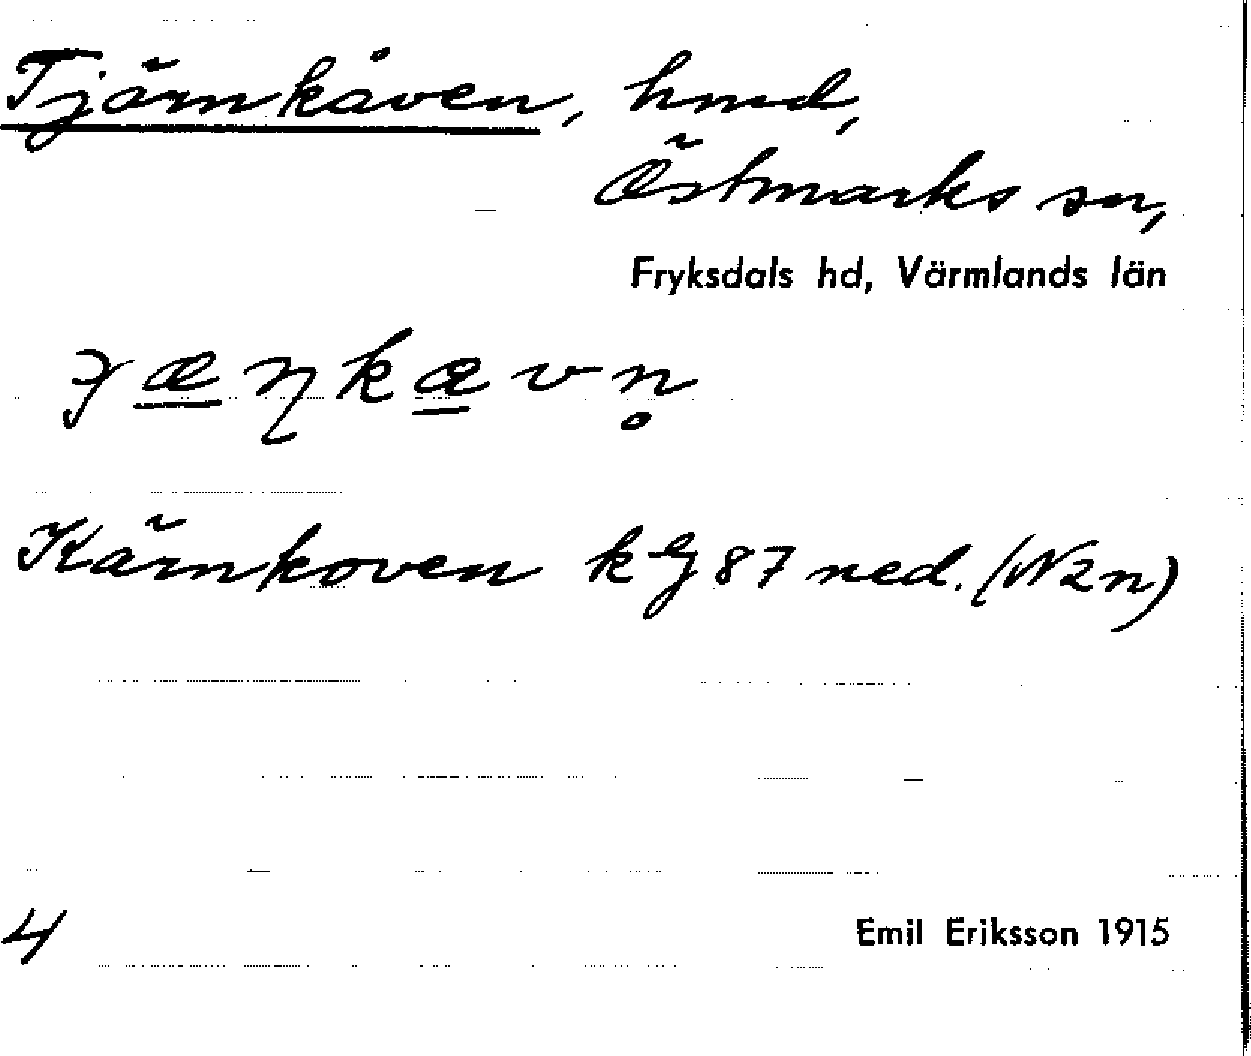 Tjärnkåven, hmd,
Östmarks sn,
Fryksdals hd, Värmlands län
Kärnkoven kg 87 ned. (N2n)
4
Emil Eriksson 1915